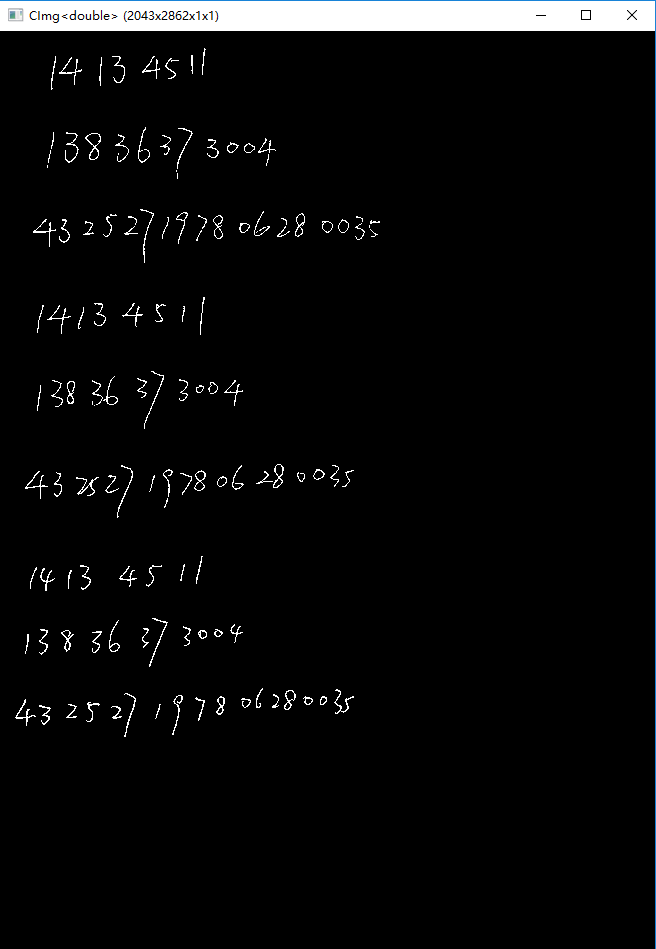 CImg<double> (2043x2862x1x1)
14 13 45 11
138 36 37 3004
43 25 27 1978 06 28 0035
14 13 45 11
138 36 37 3004
43 25 27 1978 06 28 0035
14 13 45 11
138 36 37 3004
43 25 27 1978 06 28 0035